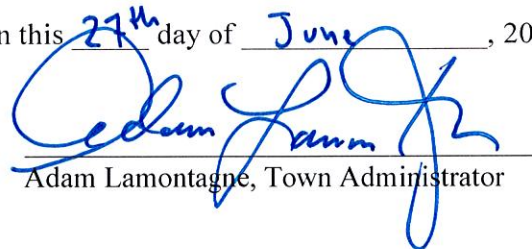 n this 27th day of June, 20
Adam Lamontagne, Town Administrator